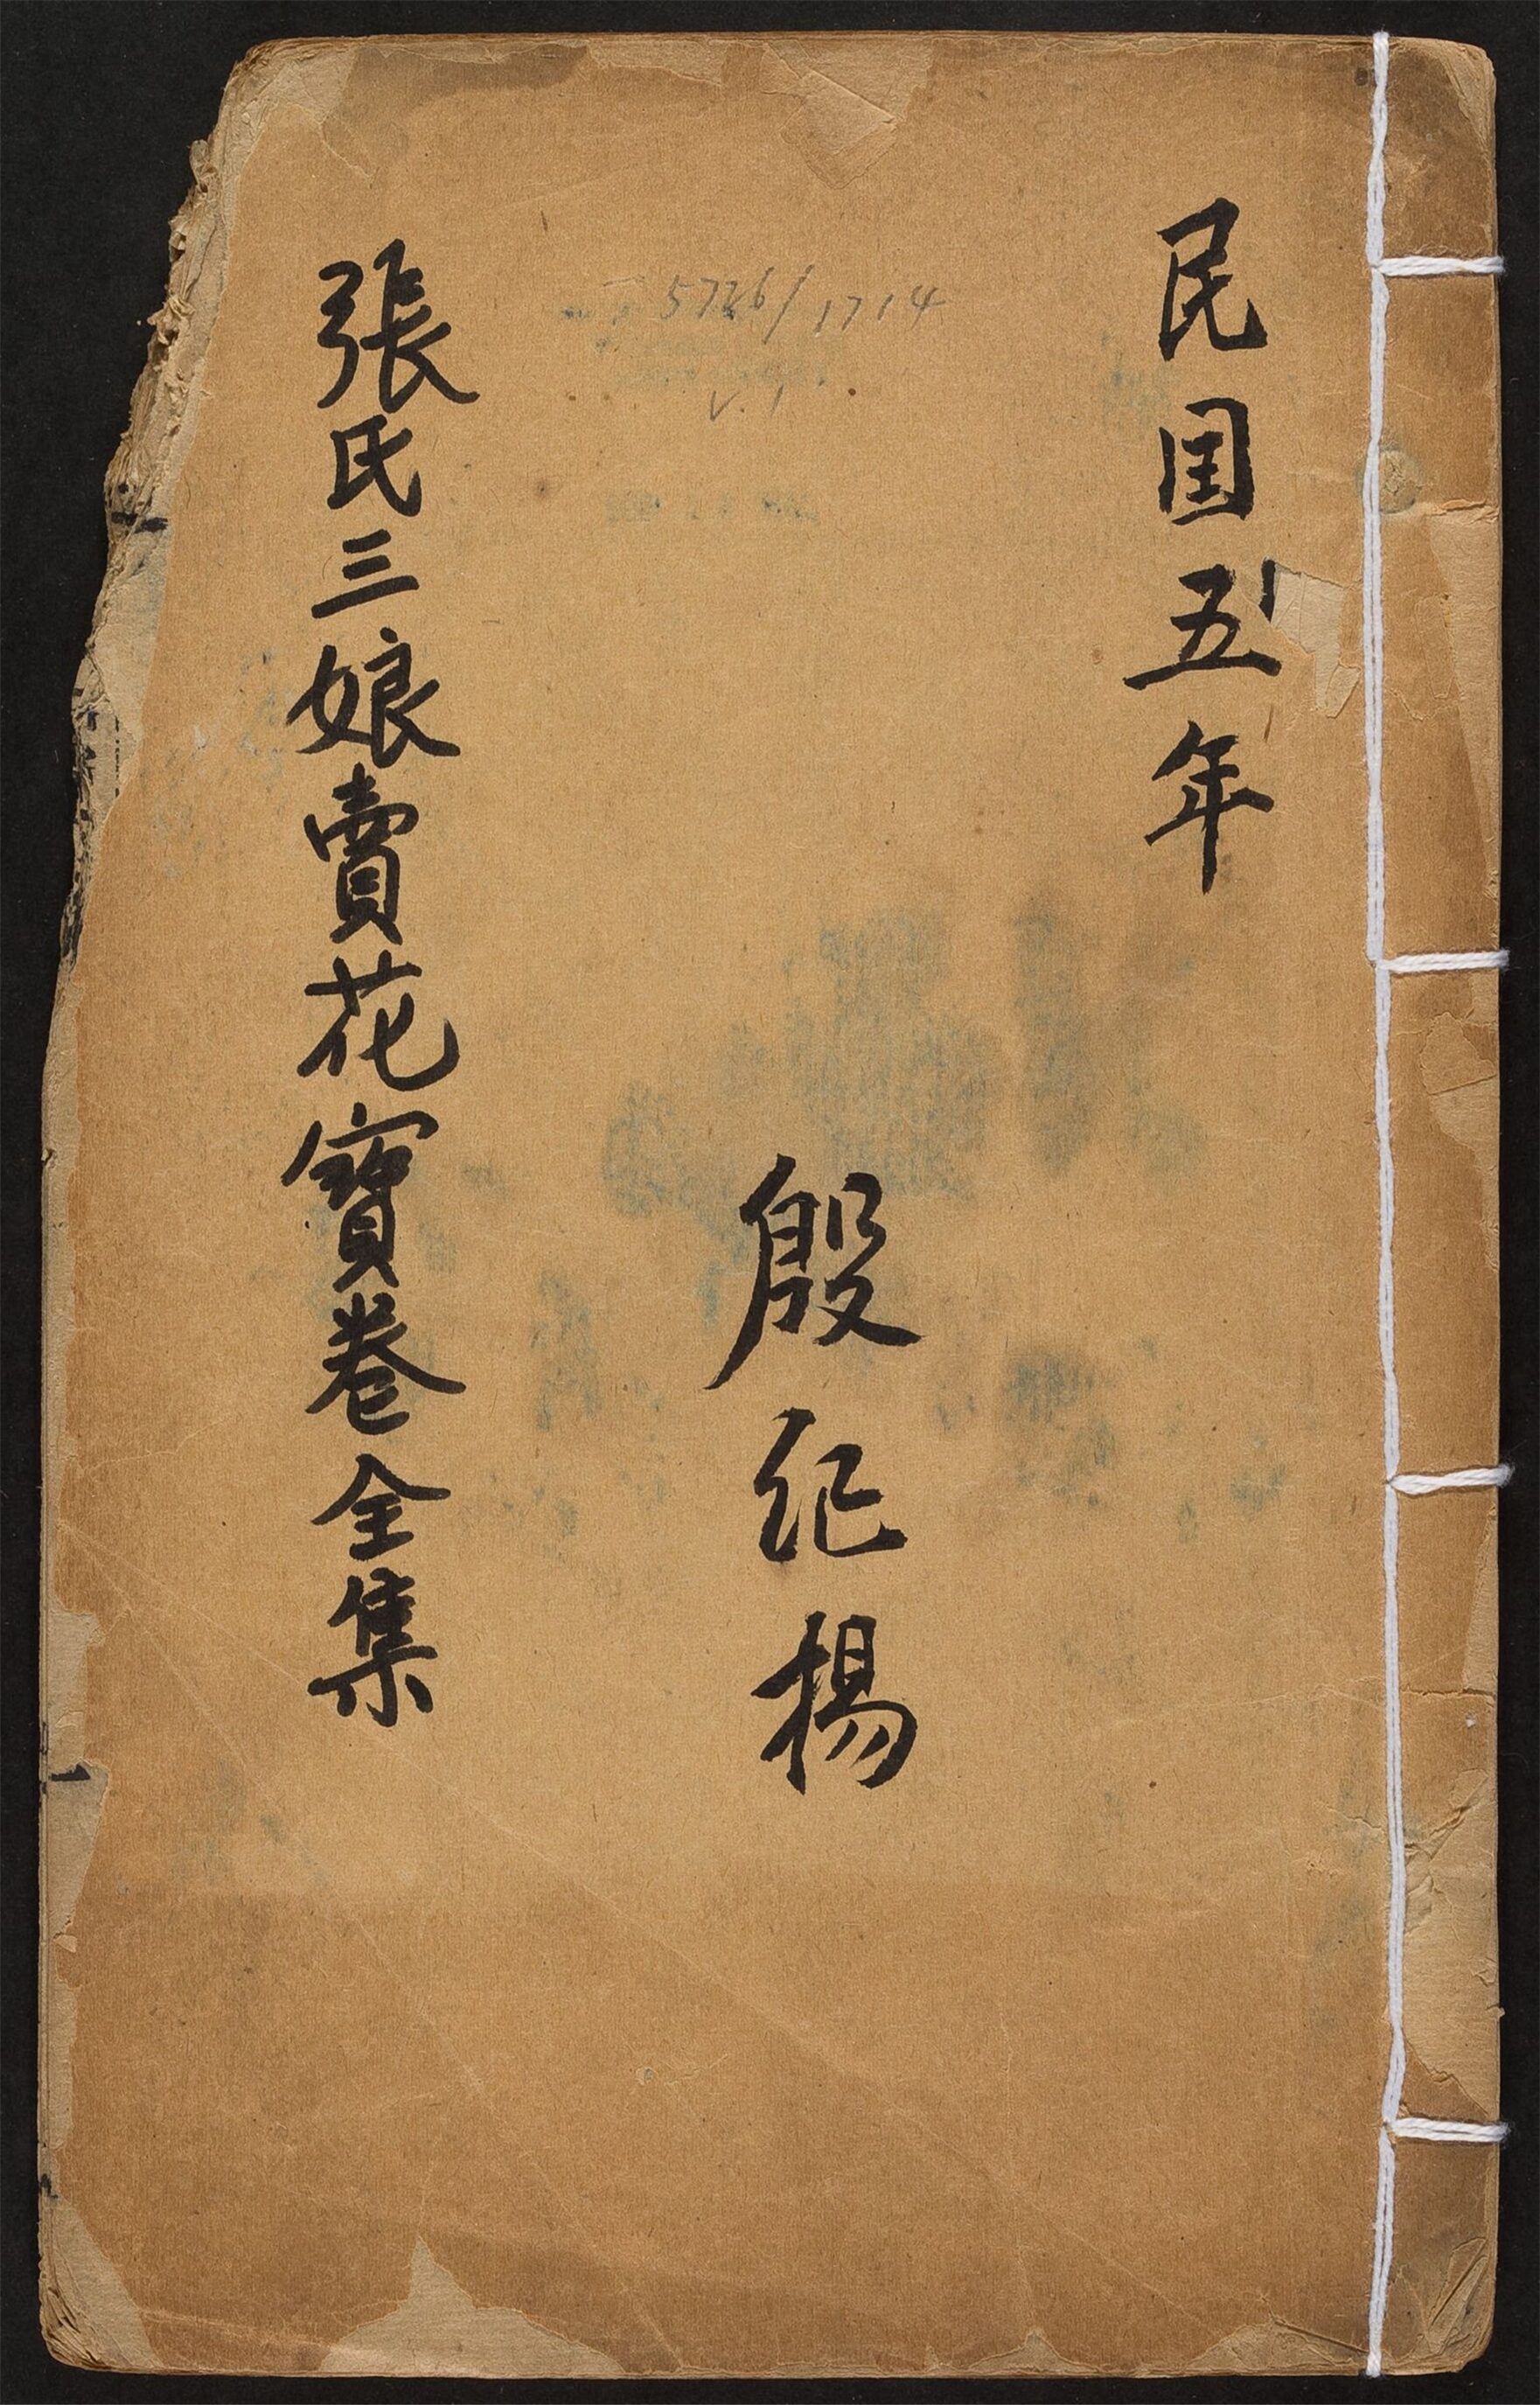 民国五年
5726/1714
v.1
殷紀揚
張氏三娘賣花寳卷全集